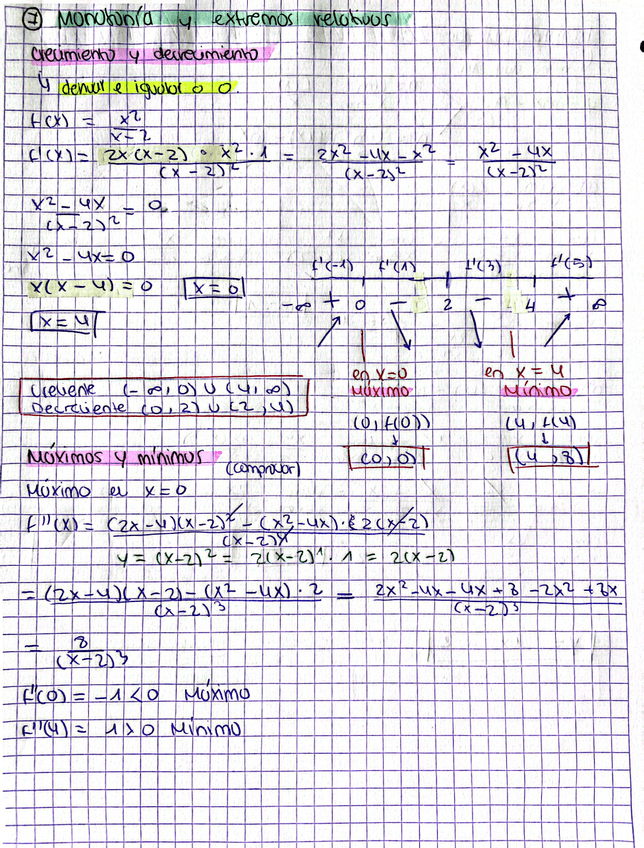 ⑦ Monotonía y extremos relativos
Crecimiento y decrecimiento
↳ derivar e igualar a 0.
f(x) = x² / x-2
f'(x) = 2x(x-2) · x²·1 / (x-2)² = 2x² -4x -x² / (x-2)² = x² -4x / (x-2)²
x² -4x / (x-2)² = 0
x² -4x = 0
x(x-4) = 0 x=0
x=4
f'(-1) f'(1) f'(3) f'(5)
-∞ + 0 - 2 - 4 + ∞
en x=0 en x=4
Máximo Mínimo
(0, f(0)) (4, f(4)
↓ ↓
(0,0) (4,8)
Creciente (-∞,0) ∪ (4,∞)
Decreciente (0,2) ∪ (2,4)
Máximos y mínimos (comprovar)
Máximo en x=0
f''(x) = (2x-4)(x-2)² - (x²-4x)·2(x-2) / (x-2)⁴
y = (x-2)² = 2(x-2)¹·1 = 2(x-2)
= (2x-4)(x-2) - (x² -4x)·2 / (x-2)³ = 2x² -4x -4x +8 -2x² +8x / (x-2)³
= 8 / (x-2)³
f'(0) = -1 < 0 Máximo
f''(4) = 1 > 0 Mínimo